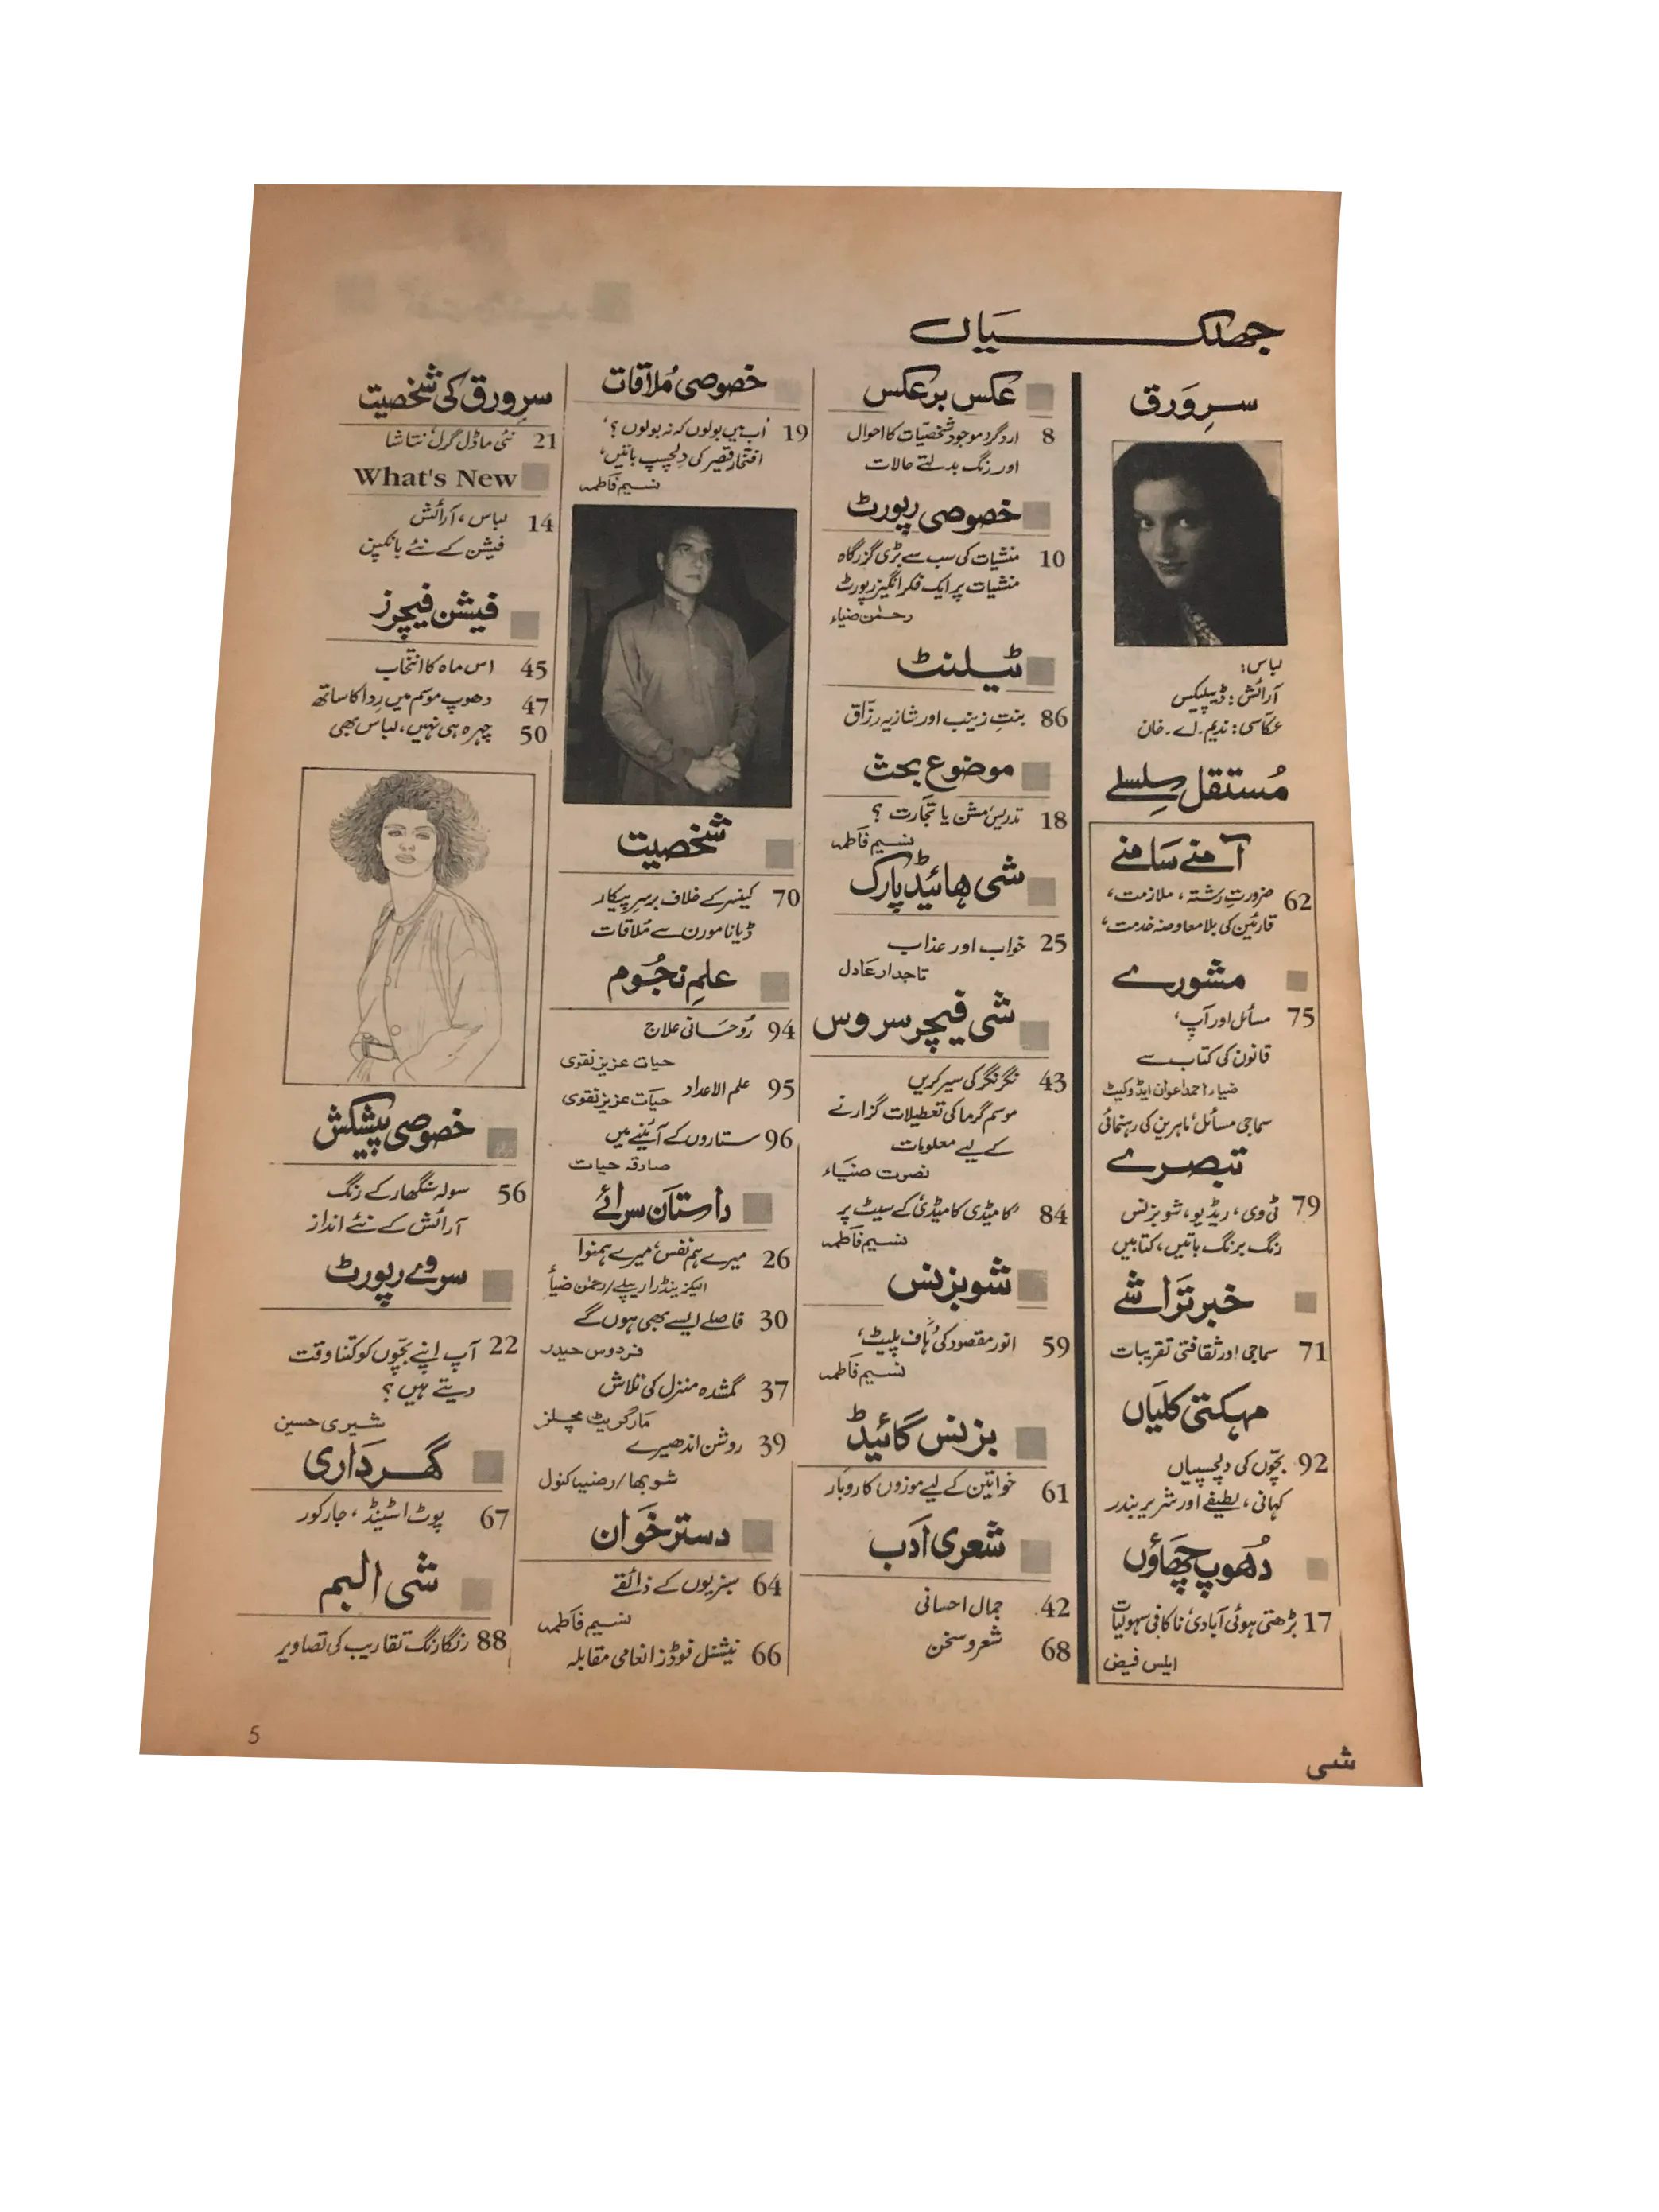 جھلکــــیاں
سرِوَرق
لباس:
آرائش: ڈیپلیکس
عکاسی: ندیم۔اے۔خان
مُستقل سِلسلے
آمنے سامنے
62 ضرورتِ رشتہ، ملازمت،
قارئین کی بلامعاوضہ خدمت،
مشورے
75 مسائل اور آپ،
قانون کی کتاب سے
ضیاء احمد اعوان ایڈوکیٹ
سماجی مسائل، ماہرین کی رہنمائی
تبصرے
79 ٹی وی، ریڈیو، شوبزنس
رنگ برنگ باتیں، کتابیں
خبر تراشے
71 سماجی اور ثقافتی تقریبات
مہکتی کلیاں
92 بچّوں کی دلچسپیاں
کہانی، لطیفے اور شریر بندر
دُھوپ چھاؤں
17 بڑھتی ہوئی آبادی، ناکافی سہولیات
ایلس فیض
عکس برعکس
8 اردگرد موجود شخصیّات کا احوال
اور رنگ بدلتے حالات
خصوصی رپورٹ
10 منشیات کی سب سے بڑی گزرگاہ
منشیات پر ایک فکر انگیز رپورٹ
رحمٰن ضیاء
ٹیلنٹ
86 بنتِ زینب اور شازیہ رزّاق
موضوع بحث
18 تدریس، مشن یا تجارت ؟
نسیم فاطمہ
شی ھائیڈ پارک
25 خواب اور عذاب
تاجدار عادل
شی فیچر سروس
43 نگر نگر کی سیر کریں
موسم گرما کی تعطیلات گزارنے
کے لیے معلومات
نصرت ضیاء
84 ’کامیڈی کامیڈی‘ کے سیٹ پر
نسیم فاطمہ
شوبزنس
59 انور مقصود کی ’ہاف پلیٹ‘
نسیم فاطمہ
بزنس گائیڈ
61 خواتین کے لیے موزوں کاروبار
شعری ادب
42 جمال احسانی
68 شعر و سخن
خصوصی مُلاقات
19 ’اب میں بولوں کہ نہ بولوں؟‘
افتخار قیصر کی دلچسپ باتیں،
نسیم فاطمہ
شخصیت
70 کینسر کے خلاف برسرِ پیکار
ڈیانا مورن سے مُلاقات
علمِ نجُوم
94 رُوحانی علاج
حیات عزیز نقوی
95 علم الاعداد حیات عزیز نقوی
96 ستاروں کے آئینے میں
صادقہ حیات
داستان سرائے
26 میرے ہم نفس، میرے ہمنوا
الیگزینڈرا ریپلے/رحمٰن ضیأ
30 فاصلے ایسے بھی ہوں گے
فردوس حیدر
37 گمشدہ منزل کی تلاش
مارگریٹ مچلز
39 روشن اندھیرے
شوبھا/رضیبا کنول
دسترخوان
64 سبزیوں کے ذائقے
نسیم فاطمہ
66 نیشنل فوڈز انعامی مقابلہ
سرِورق کی شخصیت
21 نئی ماڈل گرل، نتاشا
What's New
14 لباس، آرائش
فیشن کے نئے بانکپن
فیشن فیچرز
45 اس ماہ کا انتخاب
47 دھوپ موسم میں رِدا کا ساتھ
50 چہرہ ہی نہیں، لباس بھی
خصوصی پیشکش
56 سولہ سنگھار کے رنگ
آرائش کے نئے انداز
سروے رپورٹ
22 آپ اپنے بچّوں کو کتنا وقت
دیتے ہیں؟
شیری حسین
گھرداری
67 پوٹ اسٹینڈ، جار کور
شی البم
88 رنگا رنگ تقاریب کی تصاویر
شی
5